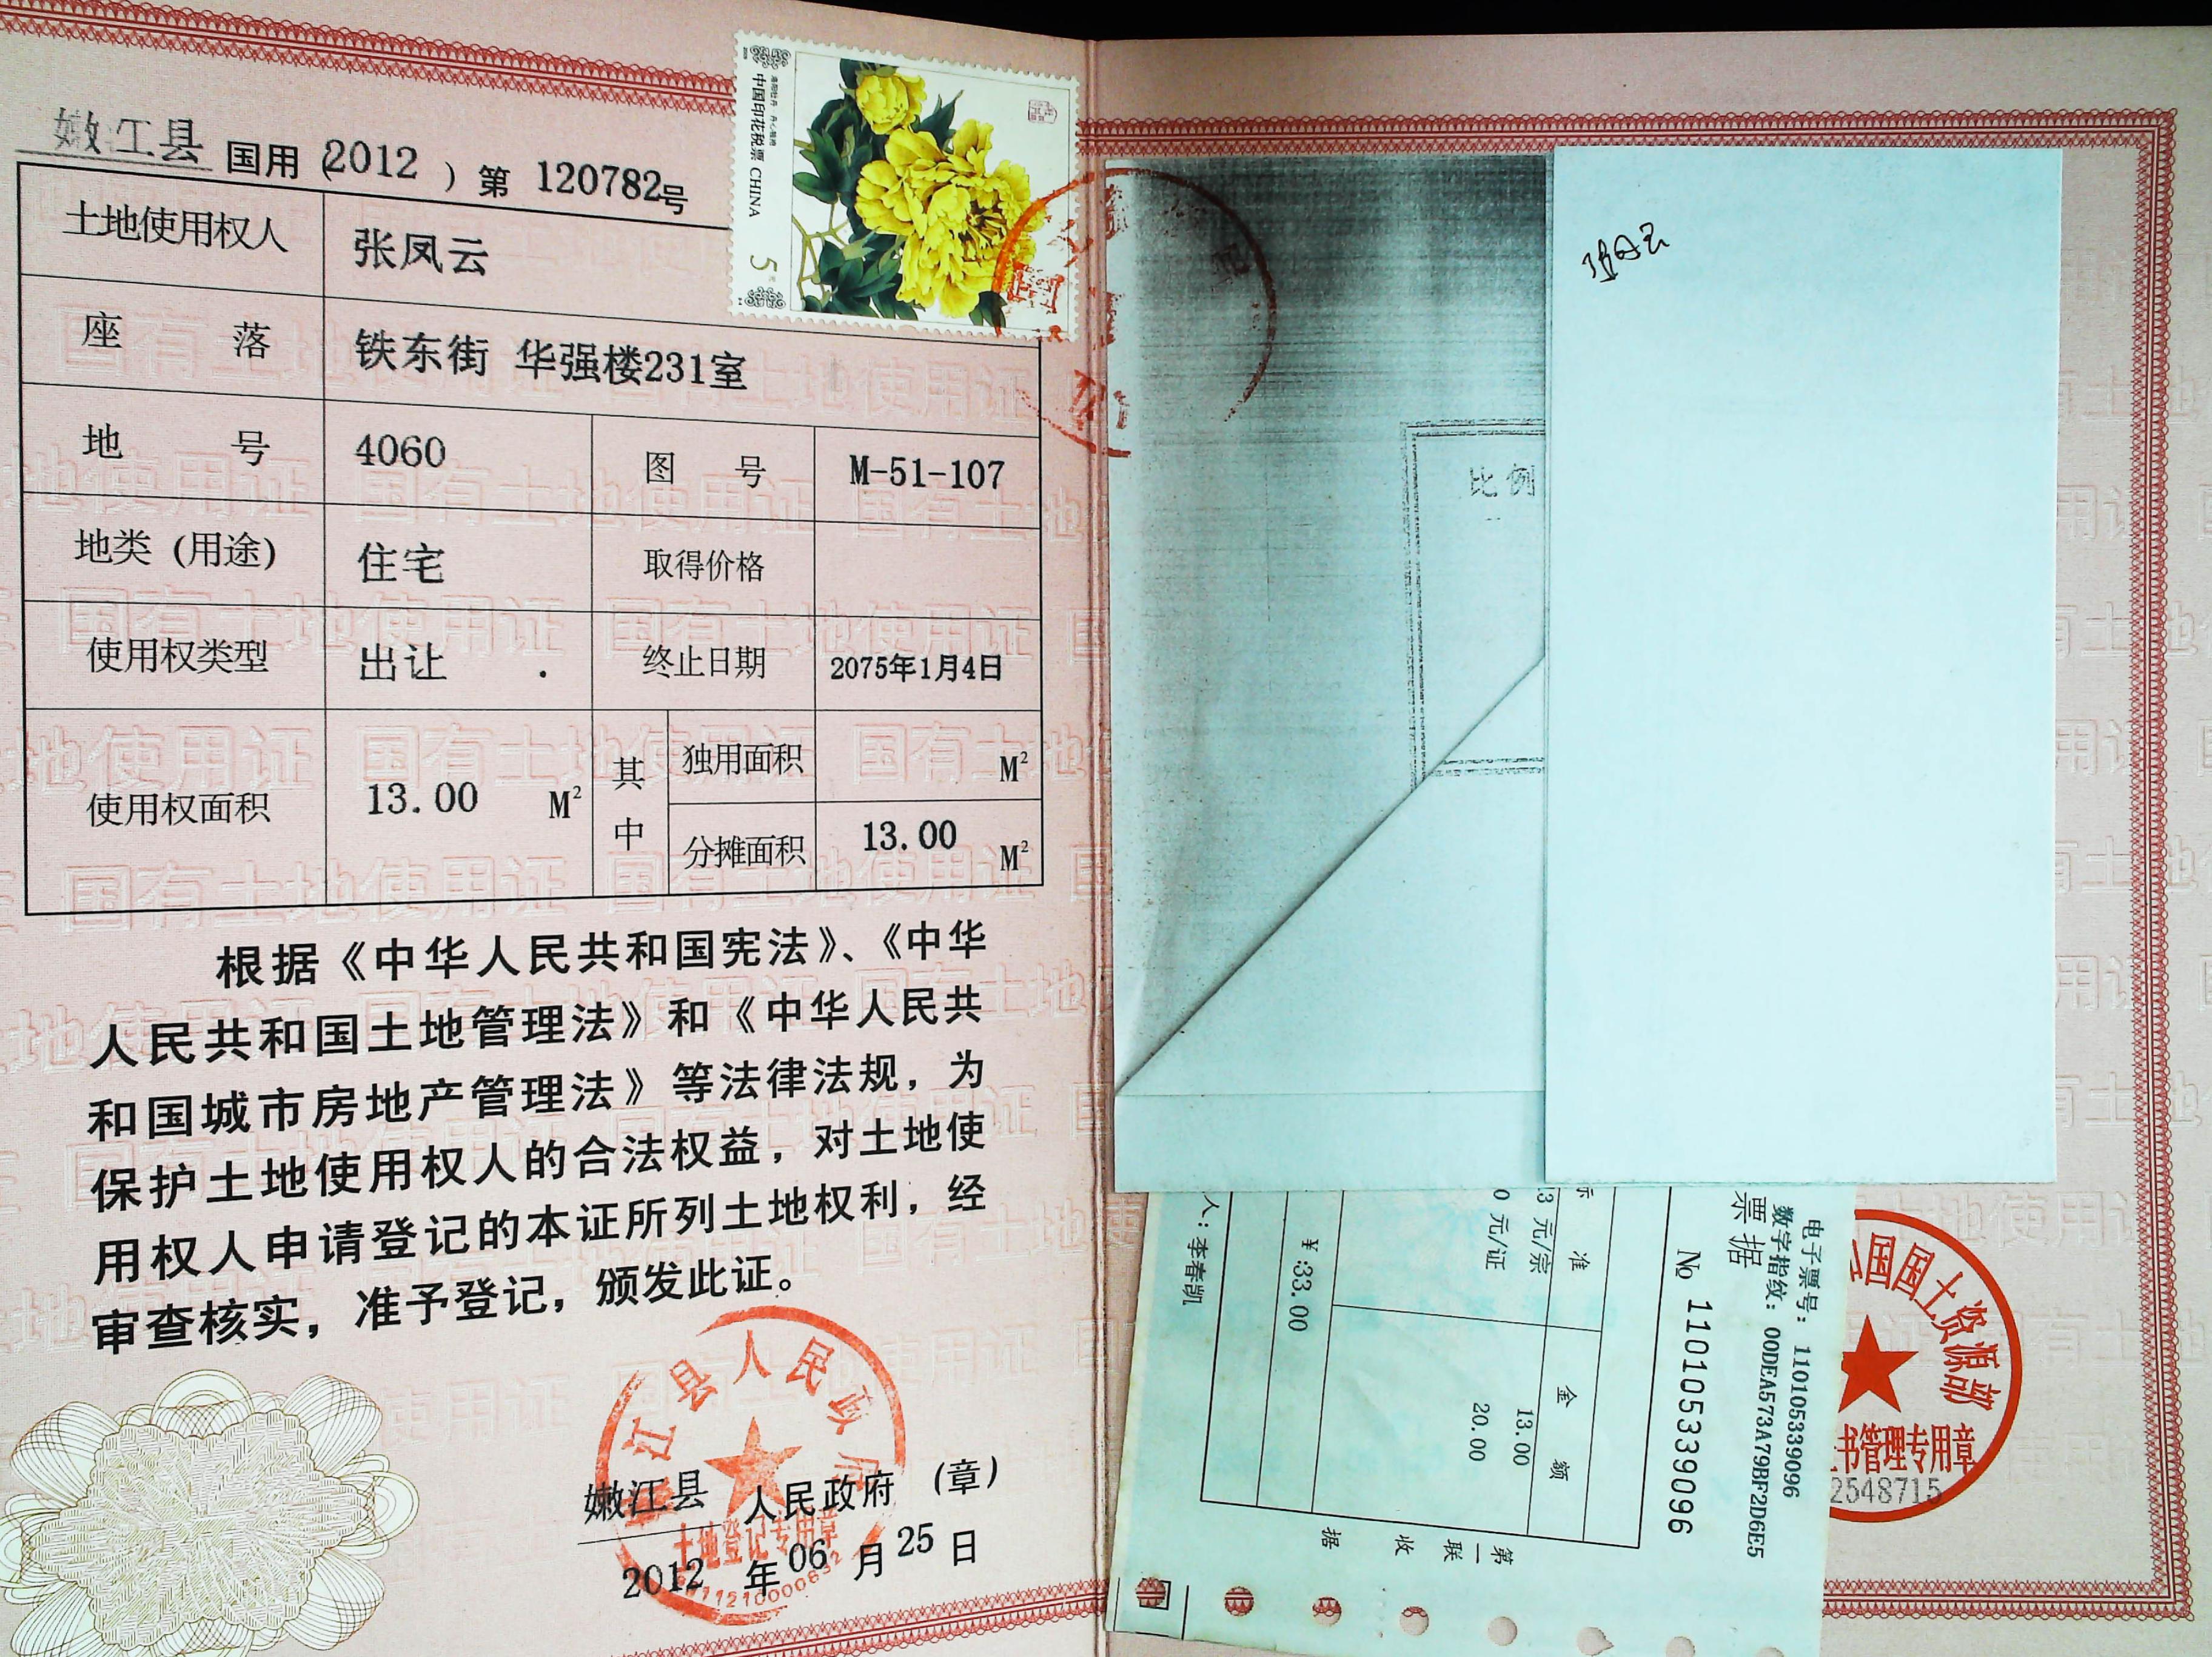 嫩江县 国用（2012）第 120782号
中国印花税票 CHINA
5
土地使用权人 张凤云
座落 铁东街 华强楼231室
地号 4060 图号 M-51-107
地类（用途） 住宅 取得价格
使用权类型 出让 . 终止日期 2075年1月4日
使用权面积 13.00 M² 其中 独用面积 M²
分摊面积 13.00 M²
根据《中华人民共和国宪法》、《中华
人民共和国土地管理法》和《中华人民共
和国城市房地产管理法》等法律法规，为
保护土地使用权人的合法权益，对土地使
用权人申请登记的本证所列土地权利，经
审查核实，准予登记，颁发此证。
江县人民政府
嫩江县 人民政府（章）
土地登记专用章
2012 年 06 月 25 日
比例
电子票号：110105339096
数字指纹：00DEA573A79BF2D6E5
票据
№ 110105339096
准 金额
3 元/宗 13.00
0 元/证 20.00
¥:33.00
人：李春凯
第一联 收据
国国土资源部
书管理专用章
2548715